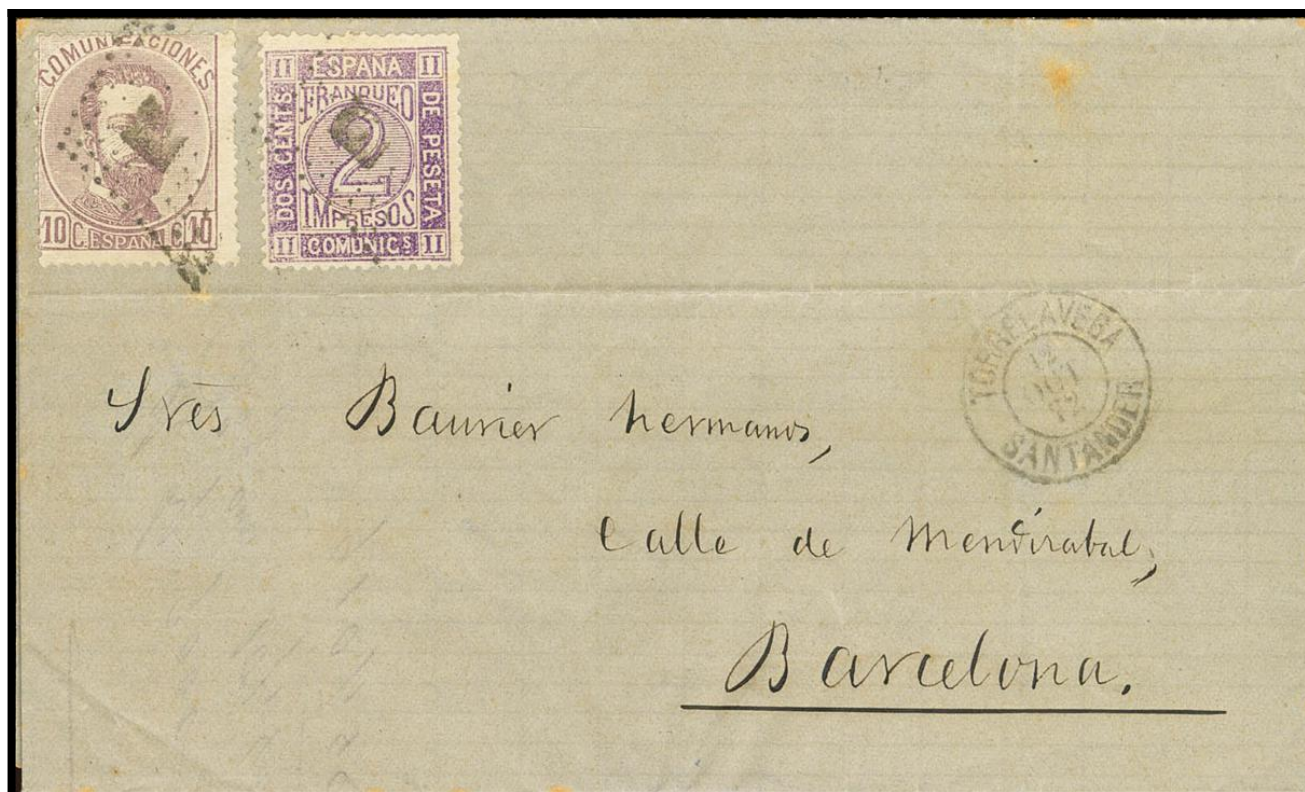 COMUNICACIONES
10 C. ESPAÑA C. 10
II ESPAÑA II
DOS CENTS
FRANQUEO
2
IMPRESOS
DE PESETA
II COMUNICS II
TORRELAVEGA
OCT
72
SANTANDER
Sres Baurier hermanos,
Calle de Mendirabal,
Barcelona.